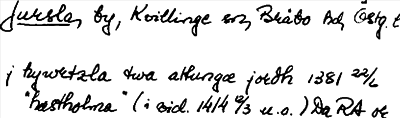 Jursla, by, Kvillinge sn, Bråbo hd, Östg. l
j hywrtzla twa attungæ jordh 1381 22/6
"hæstholma" (i vid. 1414 12/3 u.o.) Da RA oc